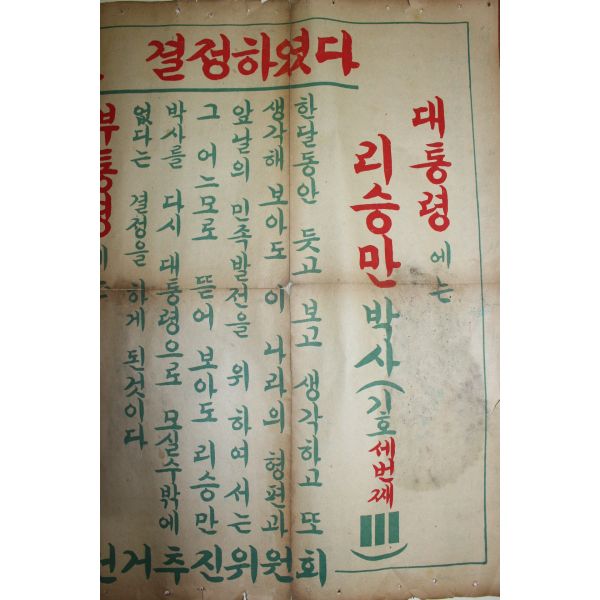 결정하였다
대통령에는
리승만 박사 (기호 세번째 III)
한달동안 듯고 보고 생각하고 또
생각해 보아도 이 나라의 형편과
앞날의 민족발전을 위하여서는
그 어느모로 뜯어 보아도 리승만
박사를 다시 대통령으로 모실수밖에
없다는 결정을 하게 된것이다
부통령에는
선거추진위원회